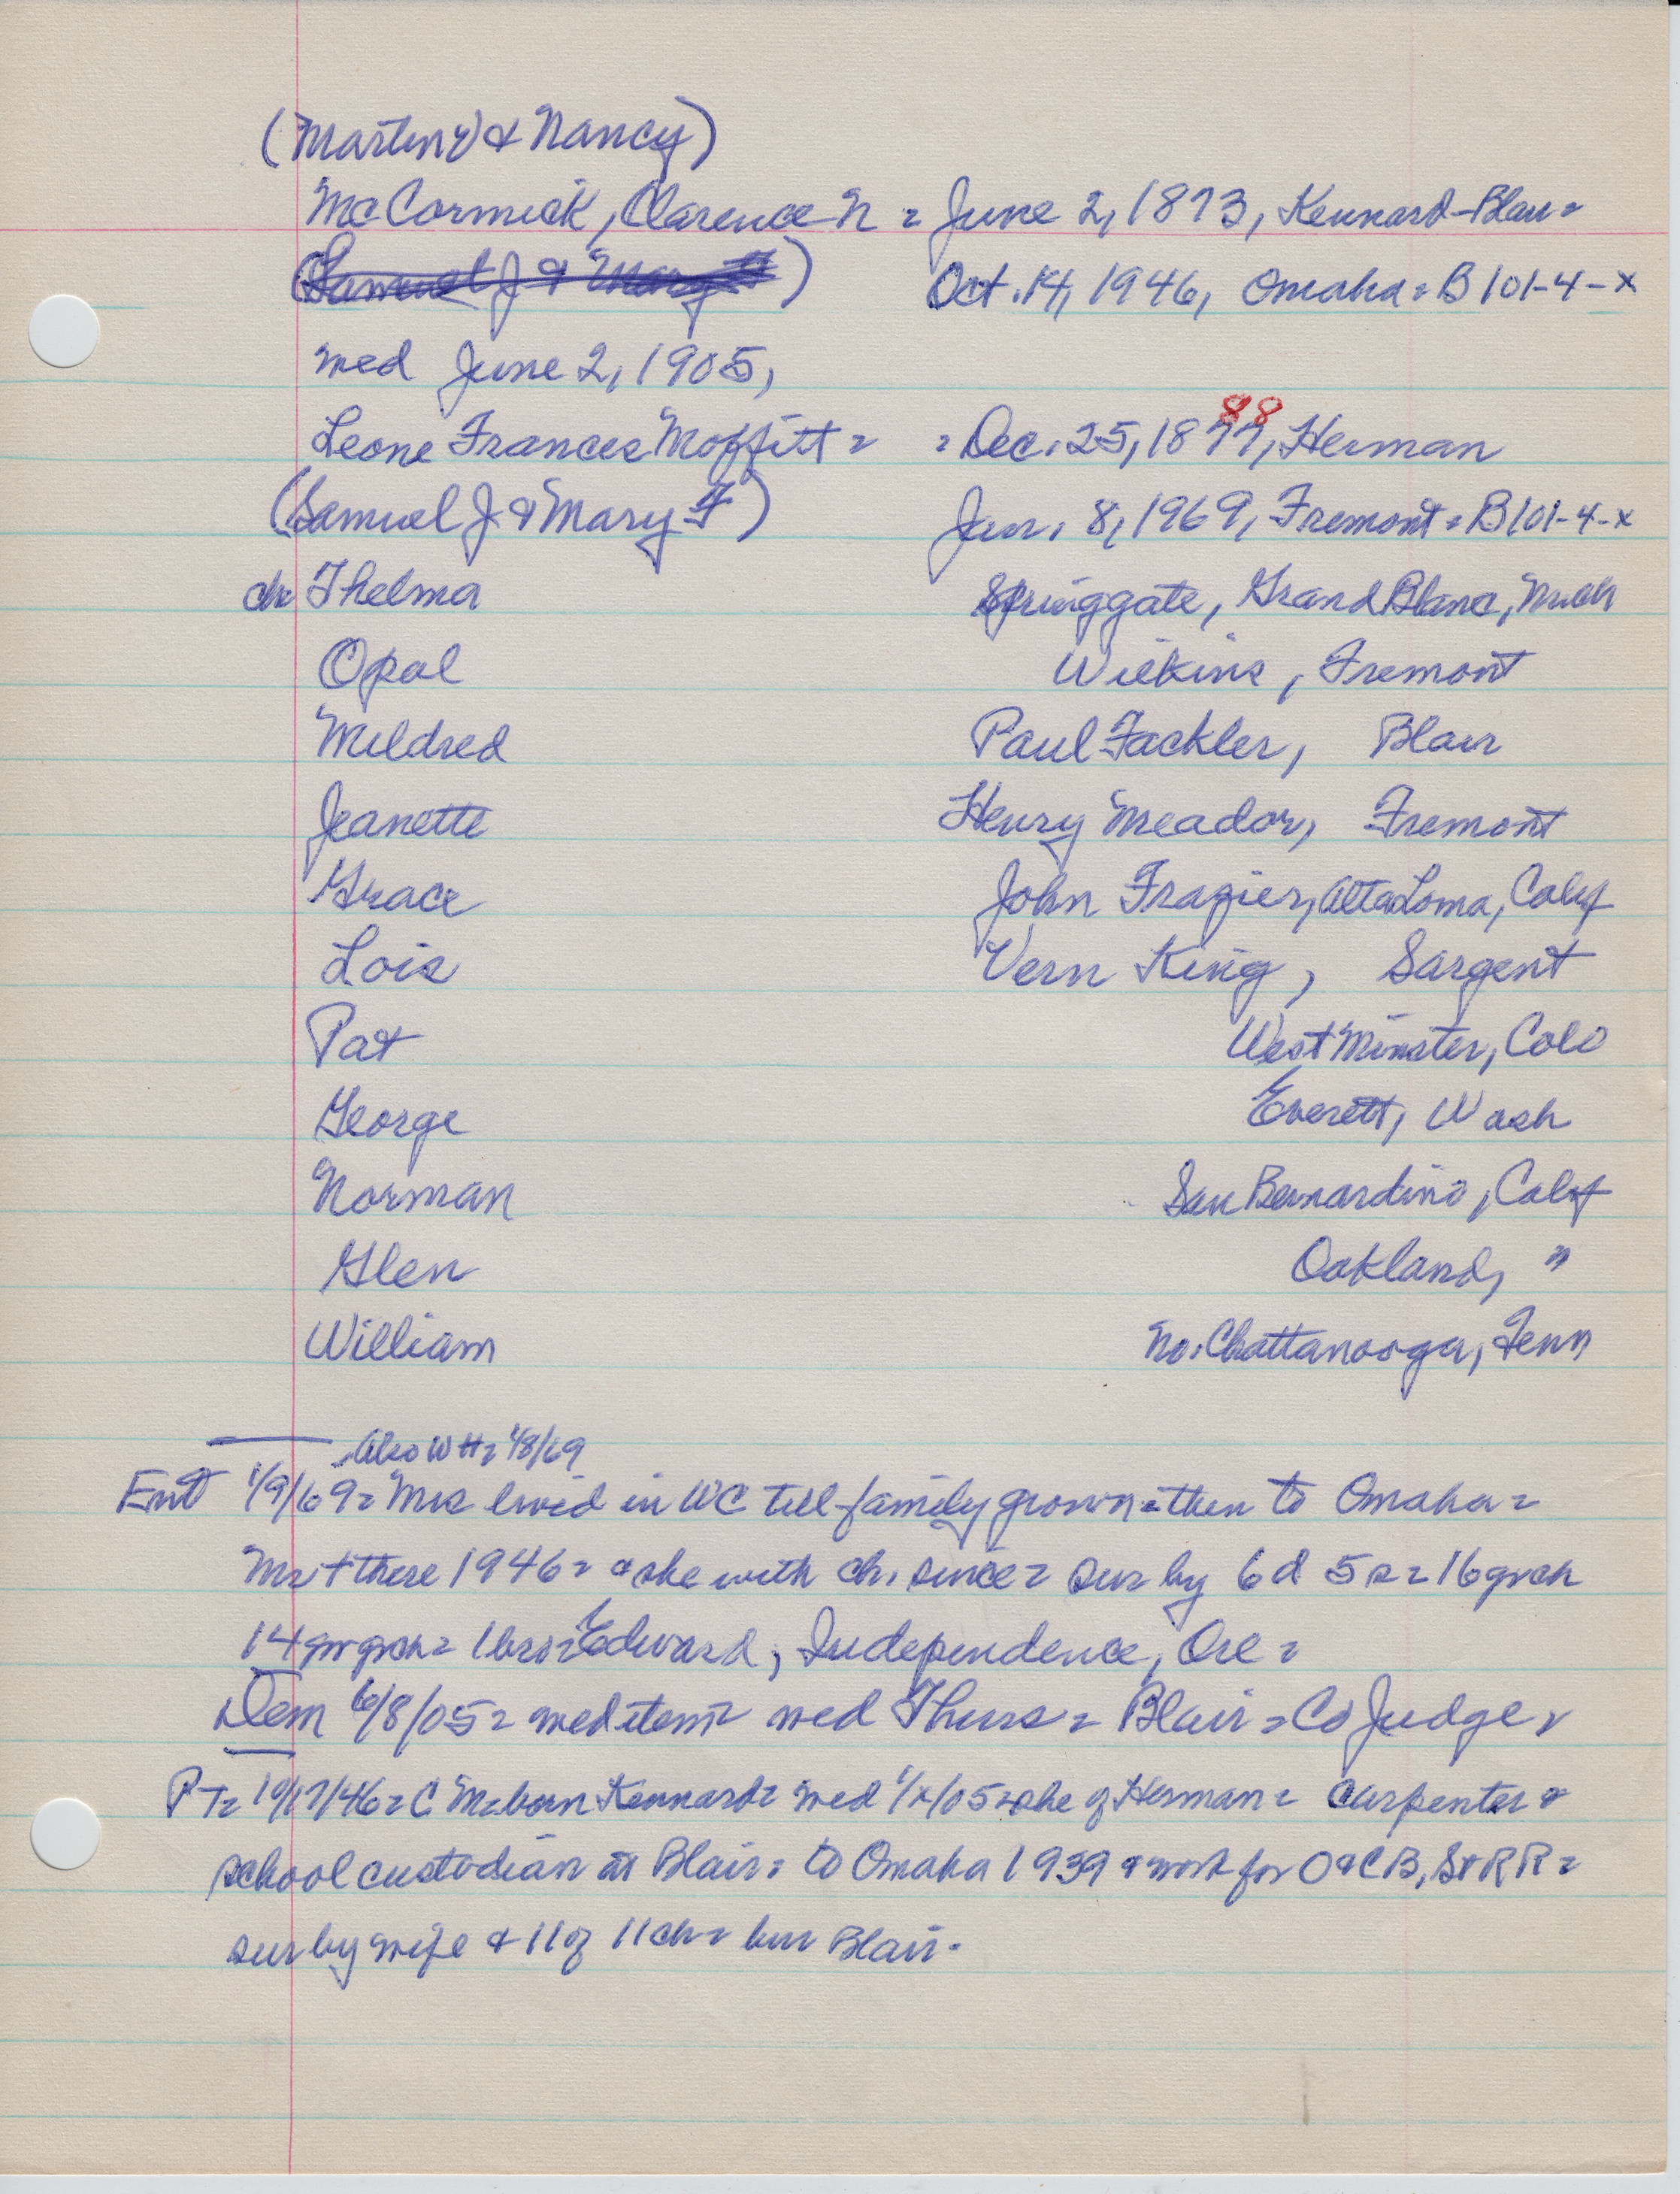 (Martin V & Nancy)
McCormick, Clarence N = June 2, 1873, Kennard-Blair=
(Samuel J & Mary F) Oct. 14, 1946, Omaha = B 101-4-x
wed June 2, 1905,
Leone Frances Moffitt = = Dec. 25, 1877, 88 Herman
(Samuel J & Mary F) Jan. 8, 1969, Fremont = B101-4-x
ch Thelma Springgate, Grand Blanc, Mich
Opal Wilkins, Fremont
Mildred Paul Fackler, Blair
Jeanette Henry Meador, Fremont
Grace John Frazier, Alta Loma, Calif
Lois Vern King, Sargent
Pat West Minster, Colo
George Everett, Wash
Norman San Bernardino, Calif
Glen Oakland, "
William No. Chattanooga, Tenn
Also WH= 1/8/69
Ent 1/9/69= Mrs lived in WC till family grown=then to Omaha=
Mr + there 1946= & she with ch. since= sur by 6 d 5 s= 16 grch
14 gr grch= 1 bro= Edward, Independence, Ore=
Dem 6/8/05= wed item= wed Thurs= Blair= Co Judge,
PT= 10/17/46= C M= born Kennard= wed 1/x/05=she of Herman= carpenter &
school custodian at Blair= to Omaha 1939 & work for O&CB, St RR=
sur by wife & 11 of 11 ch= bur Blair.